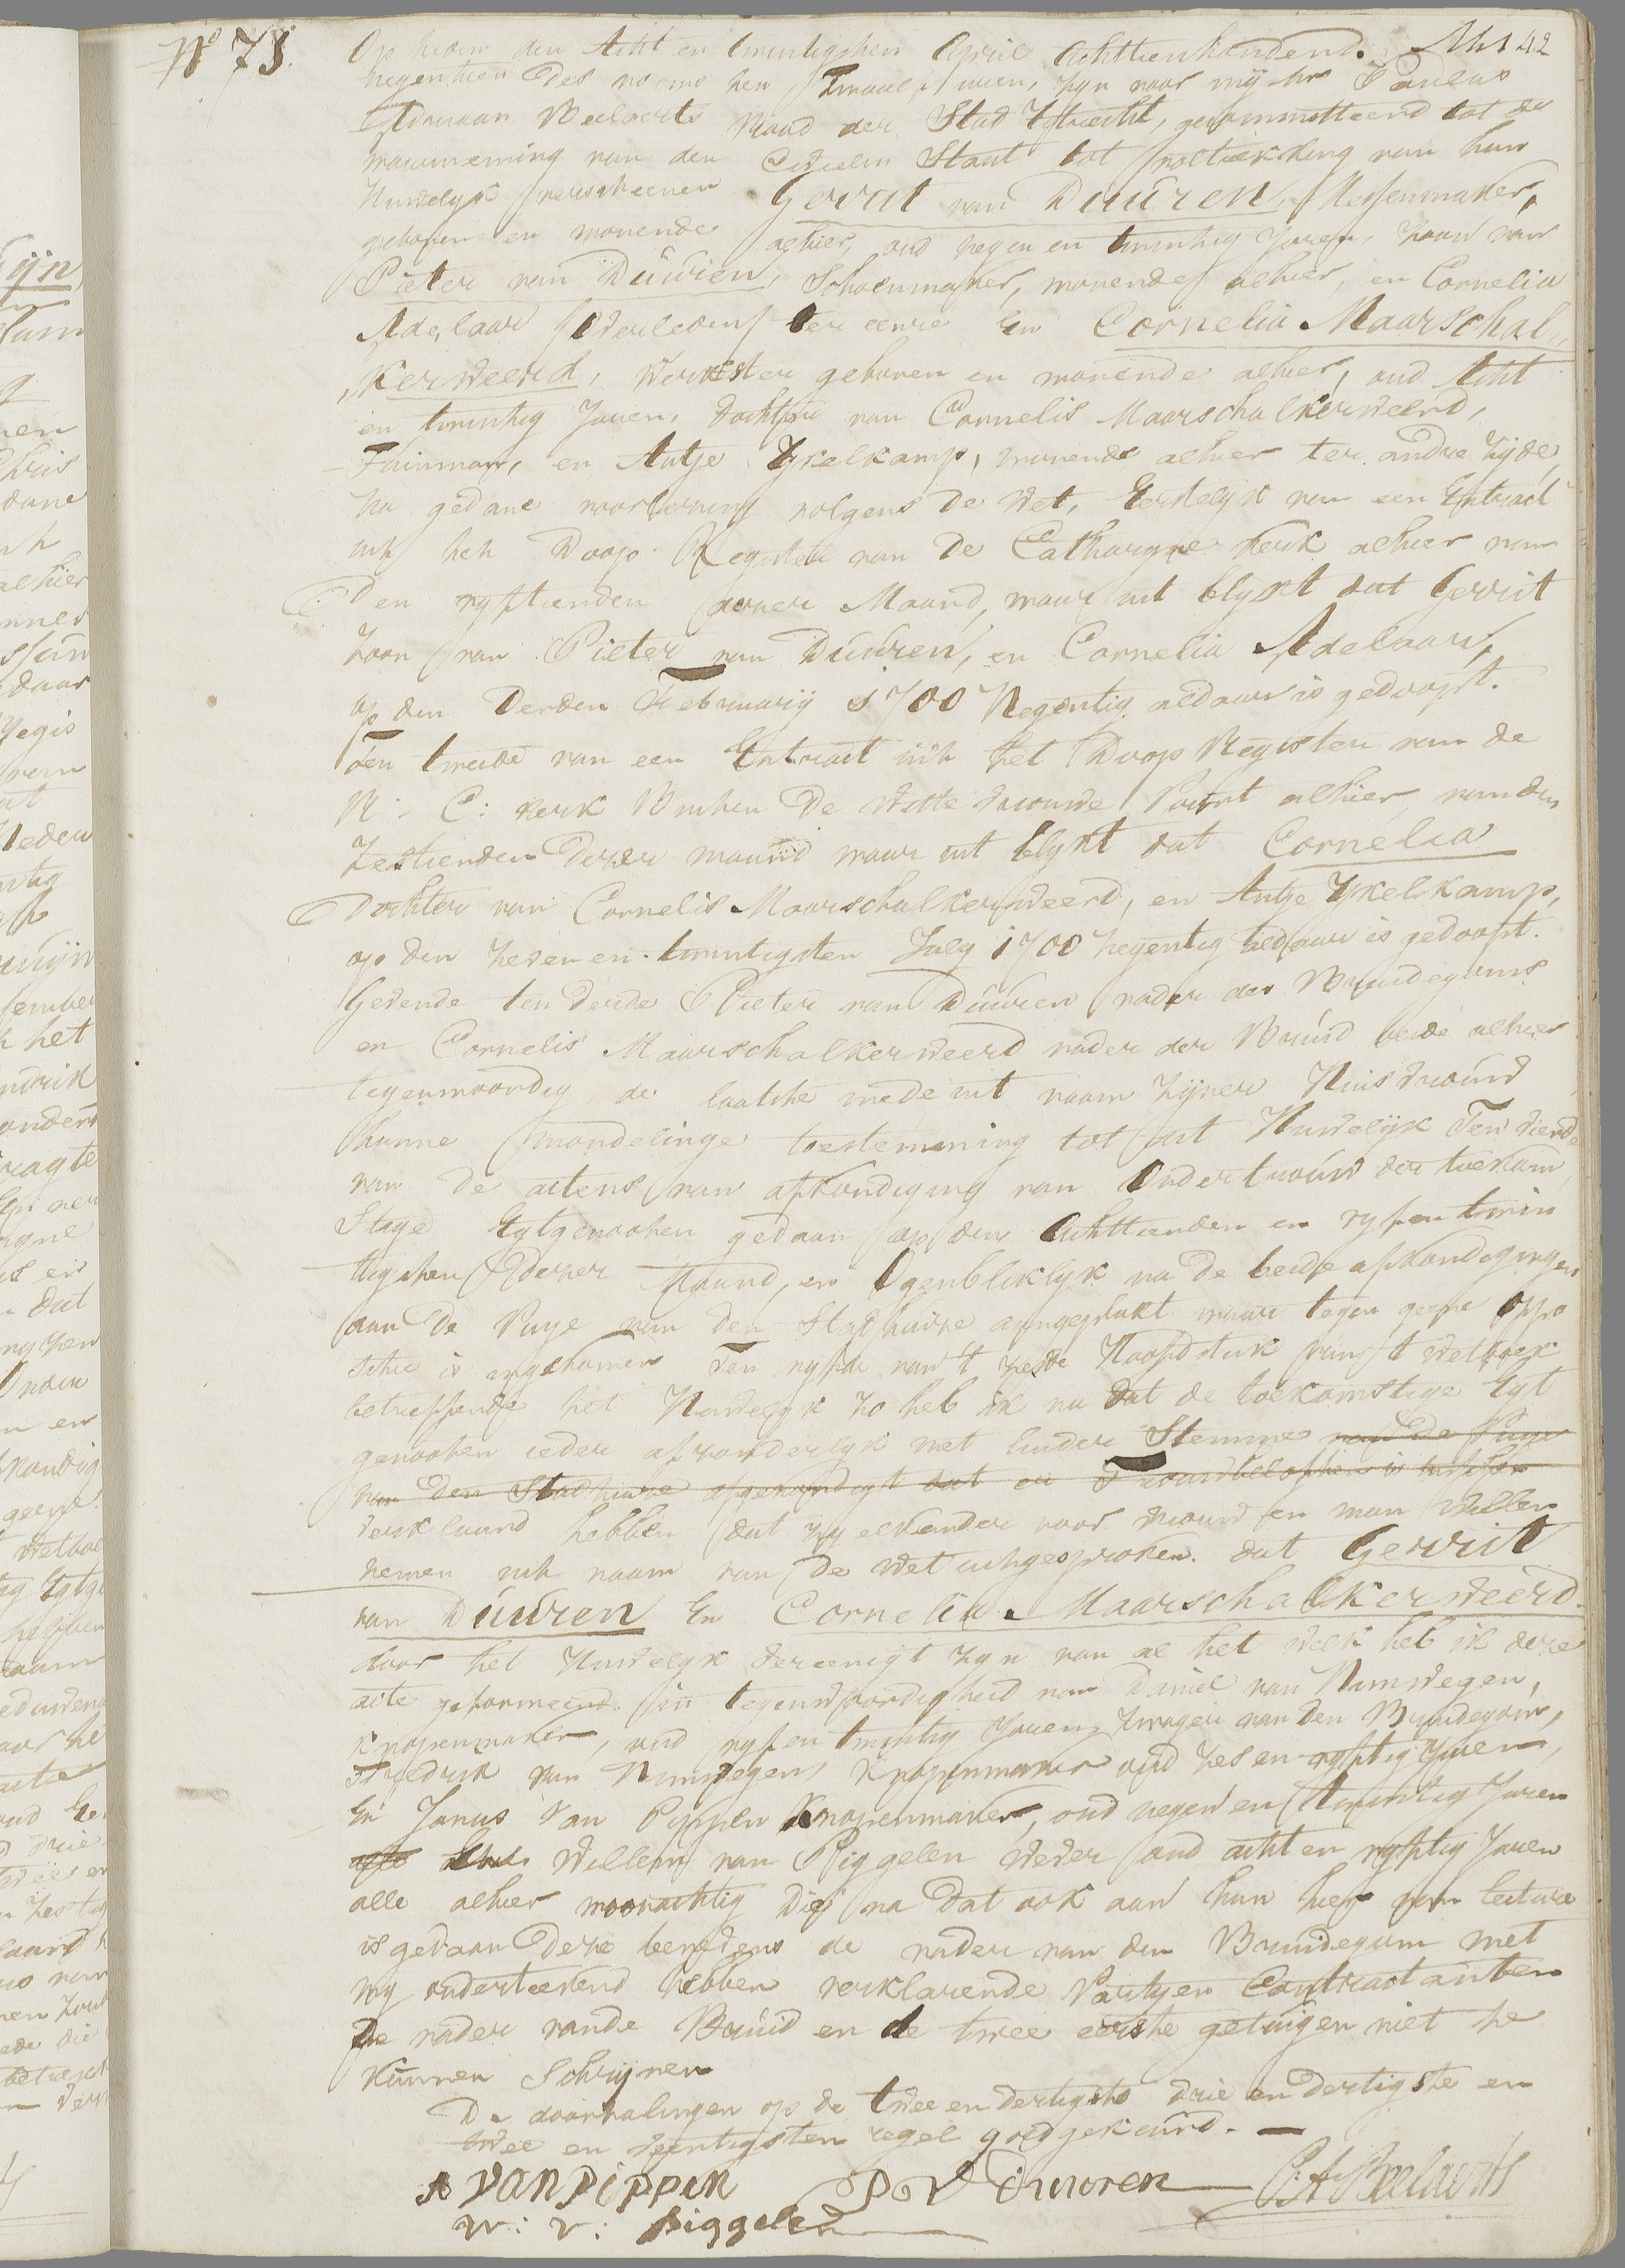 No 75.
Op heden den Acht en twintigsten April Achttienhonderd. 42
negentien des noens ten Twaalf uuren, zyn voor mij Mr Paulus
Adriaan Beelaerts Raad der Stad Utrecht, gecommitteerd tot de
waarneming van den Civielen Staat tot voltrekking van hun
Huwelyk verscheenen Gerrit van Duuren, Messenmaker,
geboren en wonende alhier, oud negen en twintig Jaren, zoon van
Pieter van Duuren, Schoenmaker, wonende alhier, en Cornelia
Adelaar overleden ter eenre En Cornelia Maarschal„
„kerweerd, Werkster geboren en wonende alhier, oud Acht
en twintig Jaren, dochter van Cornelis Maarschalkerweerd,
Tuinman, en Antje Ykelkamp, wonende alhier ter andre Zyde,
na gedane voorlezing volgens de Wet, Eerstelyk van een Extract
uit het Doop Register van de Catharyne Kerk alhier van
Den vyftienden dezer Maand, waar uit blykt dat Gerrit
Zoon van Pieter van Duuren, en Cornelia Adelaar,
op den Derden February 1700 Negentig aldaar is gedoopt.
ten tweede van een Extract uit het Doop Register van de
R: C: Kerk Buiten De Witte Vrouwe Poort alhier van den
Zestienden Dezer maand waar uit blykt dat Cornelia
Dochter van Cornelis Maarschalkerweerd, en Antje Ykelkamp,
op den zeven en twintigsten July 1700 negentig aldaar is gedoopt.
Gevende ten derde Pieter van Duuren vader des Bruidegoms
en Cornelis Maarschalkerweerd vader der Bruid beide alhier
tegenwoordig de laatste mede uit naam zijner Huisvrouw
hunne mondelinge toestemming tot dit Huwelijk Ten vierde
van de actens van afkondiging van Ondertrouw der toekom
stige Egtgenooten gedaan op den Achttienden en vyfentwin
tigsten Dezer Maand, en Ogenbliklyk na de beide afkondigingen
aan De Puye van den Stadhuize aangeplakt waar tegen geene oppo
sitie is ingekomen Ten vyfde van 't zesde Hoofdstuk van 't Wetboek
betreffende het Huwelyk zo heb ik na dat de toekomstige Egt
genooten ieder afzonderlyk met luider Stemme van de Puye
van den Stadhuize afgekondigt dat er Trouwbeloften is tusschen
verklaard hebben dat zy elkander voor vrouw en man willen
nemen uit naam van de Wet uitgesproken. dat Gerrit
van Duuren En Cornelia Maarschalkerweerd
door het Huwelyk Vereenigt zyn van al het Welk heb ik deze
acte geformeerd in tegenwoordigheid van Daniel van Nimwegen,
Knopenmaker, oud vyf en twintig Jaren, zwager van den Bruidegom,
Fredrik van Nimwegen Knopenmaker oud zes en vyftig Jaren,
En Janus Van Pippen Knopenmaker, oud negen en twintig Jaren
Willem van Piggelen Wever oud acht en vyftig Jaren
alle alhier woonachtig Die na Dat ook aan hun hier van lecture
is gedaan Deze benevens de vader van den Bruidegom met
my onderteekend hebben verklarende Partyen Contractanten
De vader van de Bruid en de twee eerste getuigen niet te
Kunnen Schryven
De doorhalingen op de twee en dertigste drie en dertigste en
twee en veertigsten regel goedgekeurd. —
A VAN PIPPEN P V Duuren P. A. Beelaerts
W: V: Piggelen